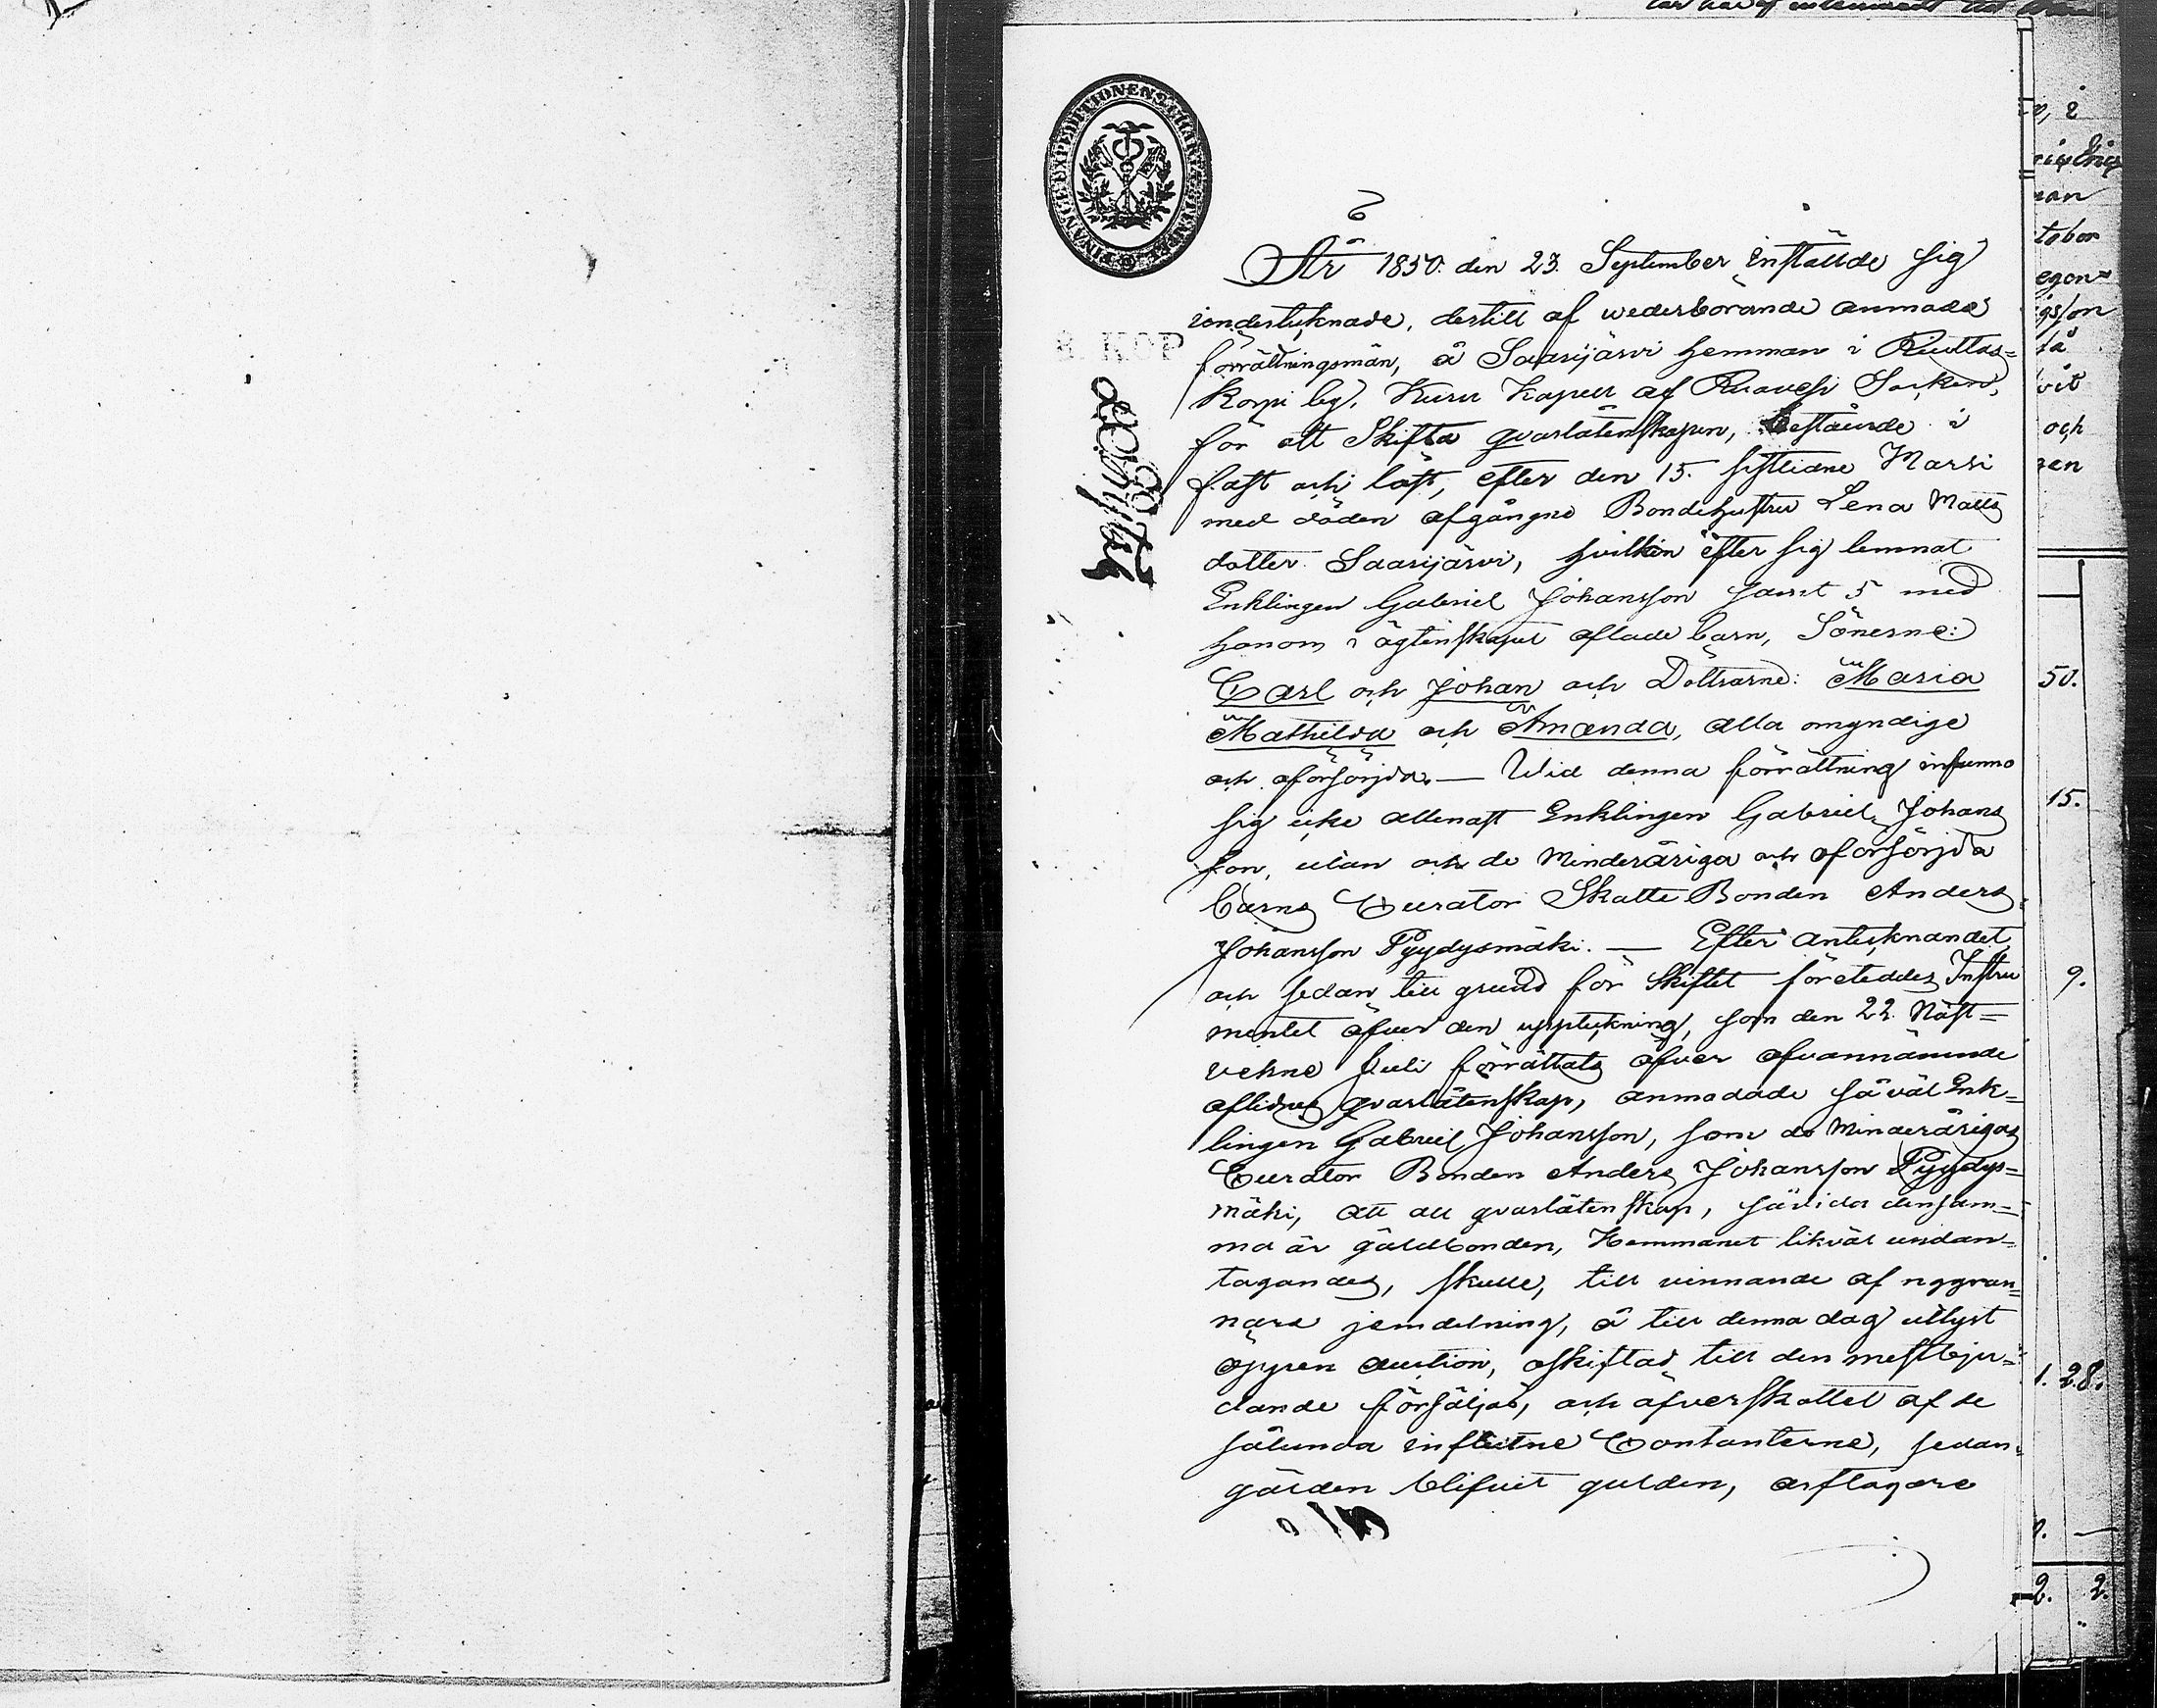 FINANCE EXPEDITIONENS CHARTÆ STEMPEL
År 1850. den 23. September inställde sig
undertecknade, dertill af wederborande anmodade
8. KOP
förrättningsmän, å Saarijärvi hemman i Ruottas=
korpi by, Kuru Kapell af Ruovesi Socken,
för att Skifta qvarlåtenskapen, bestående i
fast och löst, efter den 15. sistledne Marsi
med döden afgångne Bondehustru Lena Matts
dotter Saarijärvi, hvilken efter sig lemnat
Enklingen Gabriel Johansson samt 5 med
honom i ägtenskapet aflade barn, Sönerne:
Carl och Johan och Döttrarne: Maria
Mathilda och Amanda, alla omyndige
och oförsörjda. — Wid denna förrättning infunno
sig icke allenast Enklingen Gabriel Johans
son, utan och de Minderåriga och oförsörjda
barns Curator Skatte Bonden Anders
Johansson Pyydysmäki. — Efter antecknandet
och sedan till grund för Skiftet företeddes Instru
mentet öfver den uppteckning, som den 22. Näst=
vekne Juli förrättats öfver ofvannämnde
aflidnes qvarlåtenskap, anmodade såväl Enk=
lingen Gabriel Johansson, som de Minderårigas
Curator Bonden Anders Johansson Pyydys=
mäki, att all qvarlåtenskap, såvida densam=
ma är gäldbonden, Hemmanet likväl undan=
tagandes, skulle, till vinnande af noggran=
nare jemdelning, å till denna dag utlyst
öppen auction, oskiftad till den mestbju=
dande försäljas, och öfverskottet af de
sålunda influtne Contanterne, sedan
gälden blifvit gulden, arftagare
man
tober
egen=
gsson
så
vit
och
50.
15.
9.
1. 28.
2. 2.